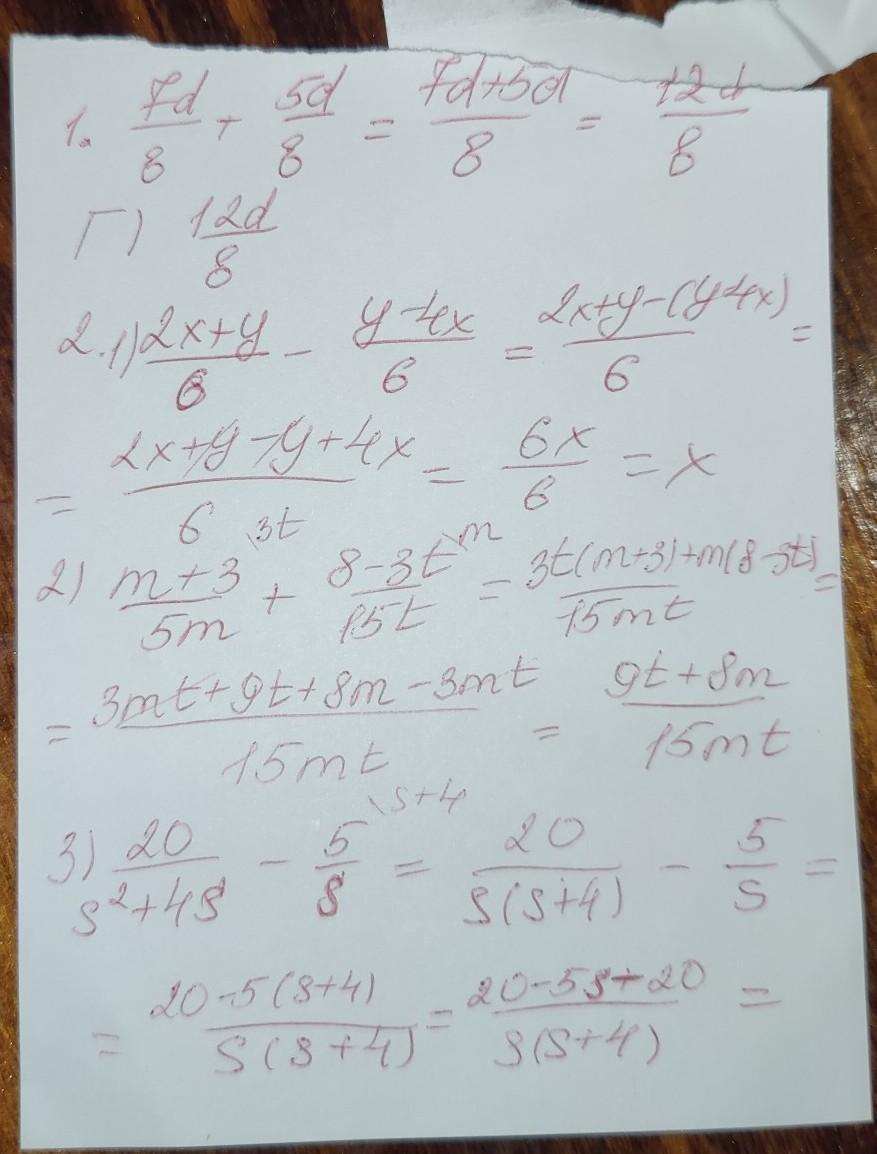 1. 7d/8 + 5d/8 = 7d+5d/8 = 12d/8
Г) 12d/8
2.1) 2x+y/6 - y-4x/6 = 2x+y-(y-4x)/6 =
= 2x+y-y+4x/6 = 6x/6 = x
2) m+3/5m \3t + 8-3t/15t \m = 3t(m+3)+m(8-3t)/15mt =
= 3mt+9t+8m-3mt/15mt = 9t+8m/15mt
3) 20/s²+4s - 5/s \s+4 = 20/s(s+4) - 5/s =
= 20-5(s+4)/s(s+4) = 20-5s+20/s(s+4) =